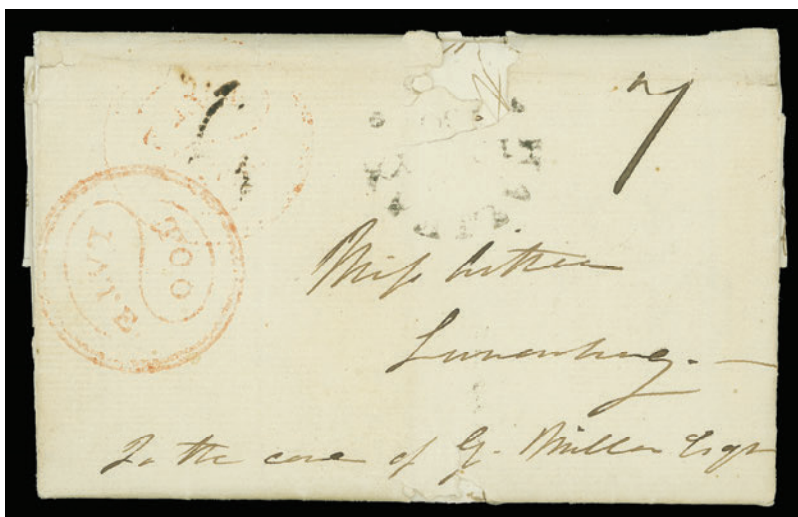 7
TOO
LATE
HALIFAX
Miss Aitken
Lunenburg.—
To the care of G. Miller Esqr